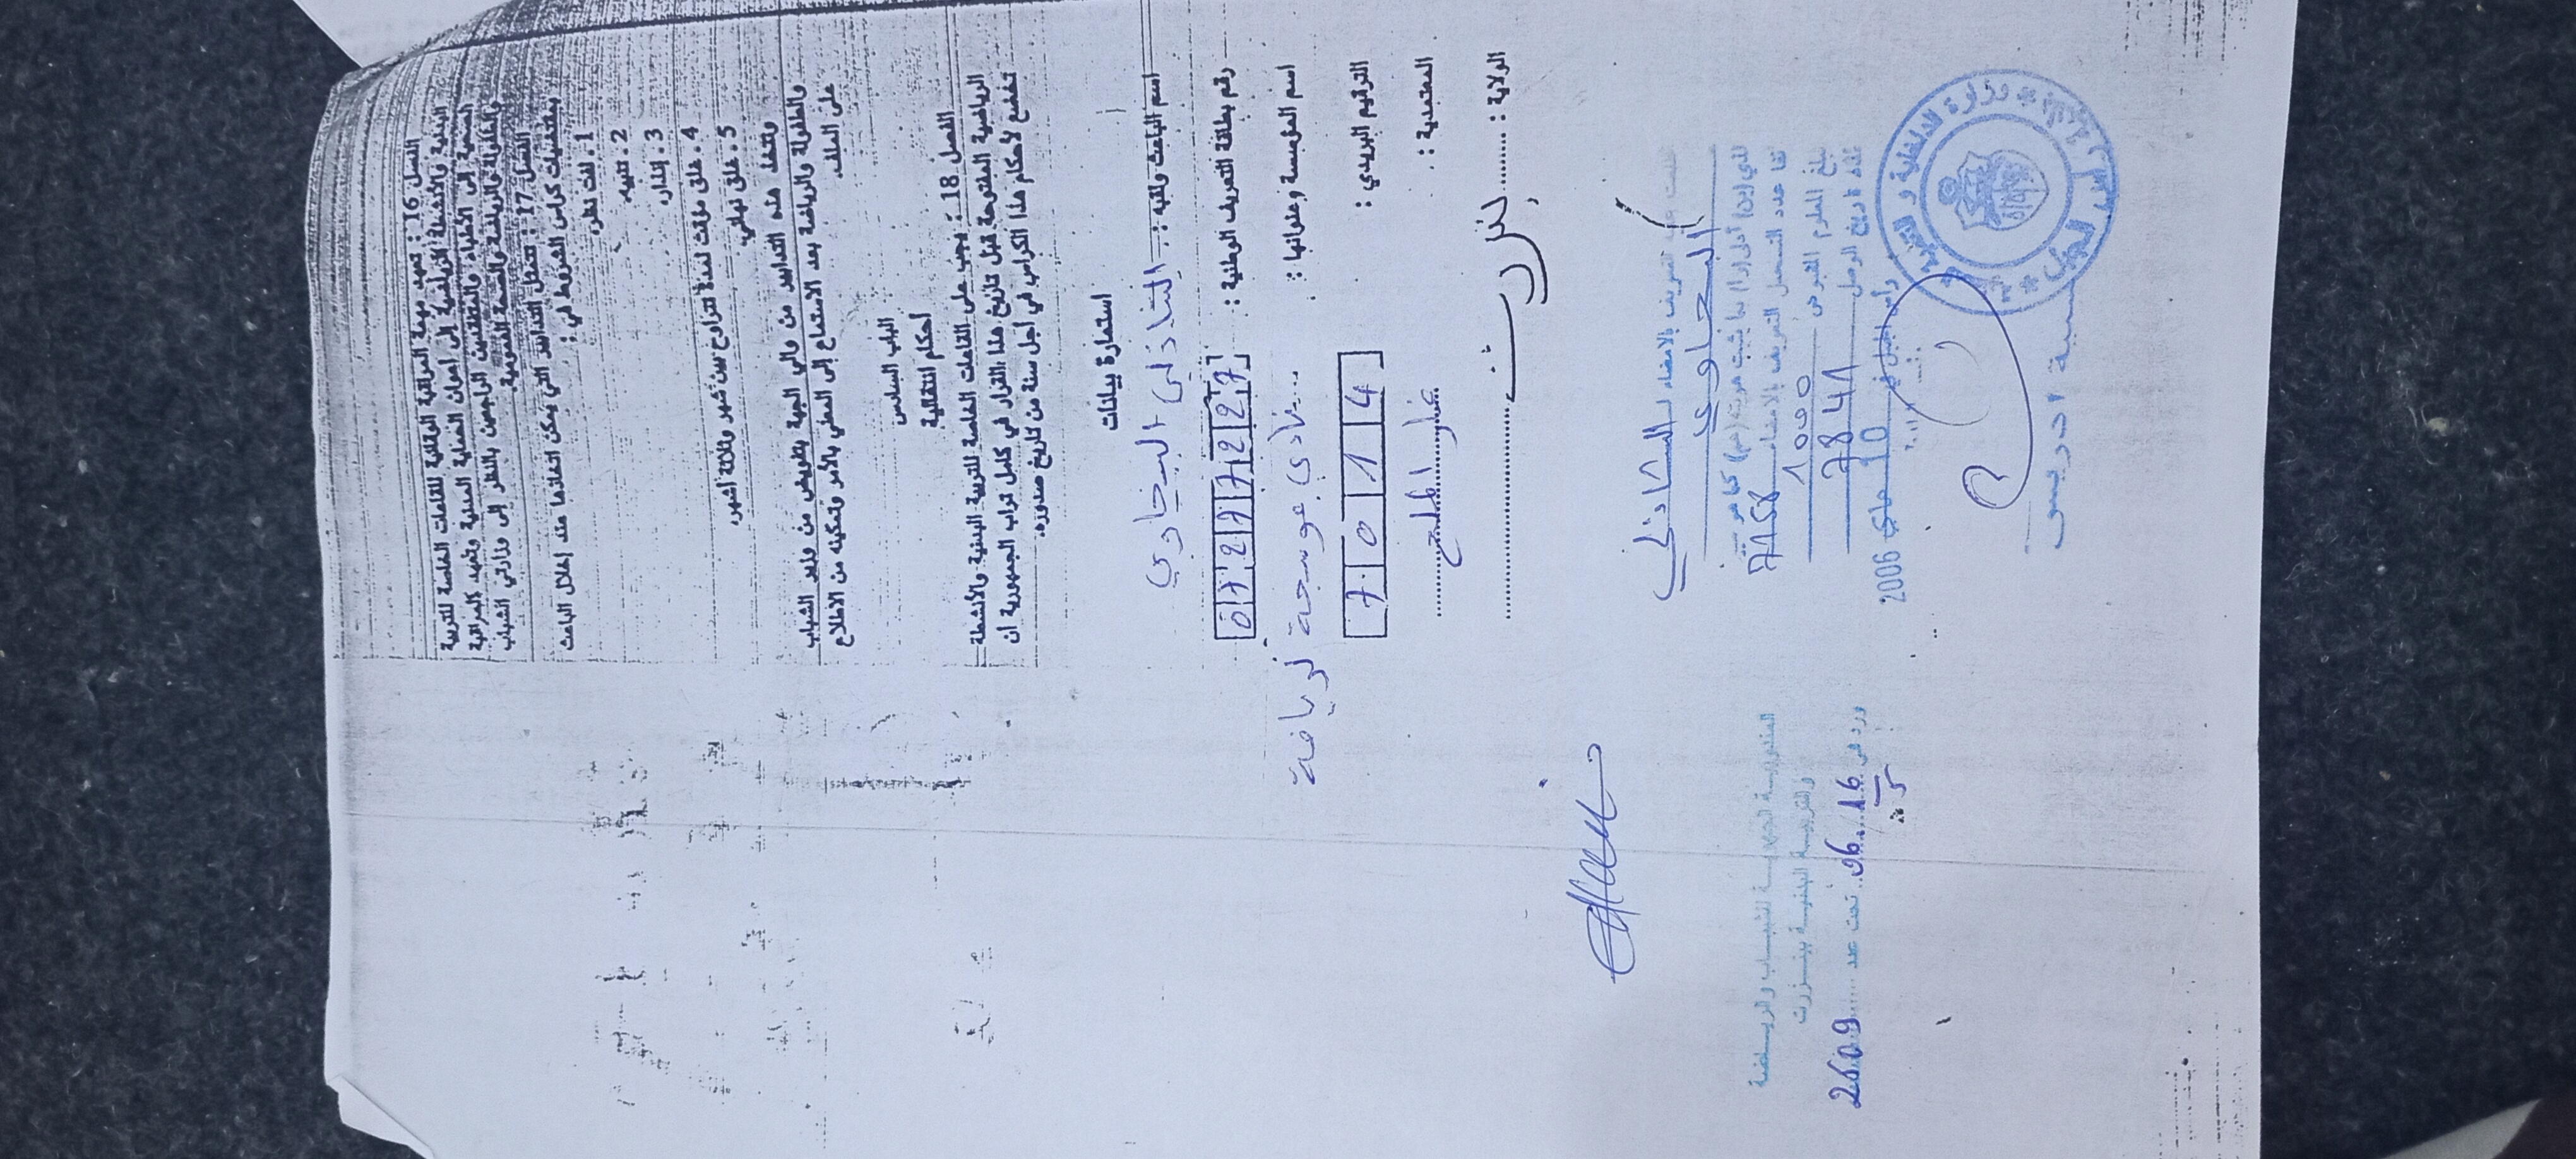 الفصل 16 : تعهد مهمة المراقبة الوقائية للقاعات الخاصة للتربية
البدنية والأنشطة الرياضية إلى أعوان الحماية المدنية وتعهد المراقبة
الصحية إلى الأطباء والمتفقدين الراجعين بالنظر إلى وزارتي الشباب
والطفولة والرياضة والصحة العمومية
الفصل 17 : تتمثل التدابير التي يمكن اتخاذها عند إخلال الباعث
بمقتضيات كراس الشروط في :
1 . لفت نظر،
2 . تنبيه،
3 . إنذار،
4 . غلق مؤقت لمدة تتراوح بين شهر وثلاثة أشهر،
5 . غلق نهائي.
وتتخذ هذه التدابير من والي الجهة بتفويض من وزير الشباب
والطفولة والرياضة بعد الاستماع إلى المعني بالأمر وتمكينه من الاطلاع
على الملف.
الباب السادس
أحكام انتقالية
الفصل 18 : يجب على القاعات الخاصة للتربية البدنية والأنشطة
الرياضية المفتوحة قبل تاريخ هذا القرار في كامل تراب الجمهورية أن
تخضع لأحكام هذا الكراس في أجل سنة من تاريخ صدوره.
استمارة بيانات
اسم الباعث ولقبه : الشاذلي
رقم بطاقة التعريف الوطنية :
اسم المؤسسة وعنوانها : نادي عوسجة لرياضة
الترقيم البريدي : 7014
المعتمدية : غار الملح
الولاية : بنزرت
التعريف بالامضاء الشاذلي
مبلغ المعلوم المقبوض 1000
تاريخ الوصل 7841
رأس الجبل في 10 ماي 2006
وزارة الداخلية و التنمية
المندوبية الجهوية للشباب والرياضة
والتربية البدنية ببنزرت
ورد في 16 تحت عدد 2609